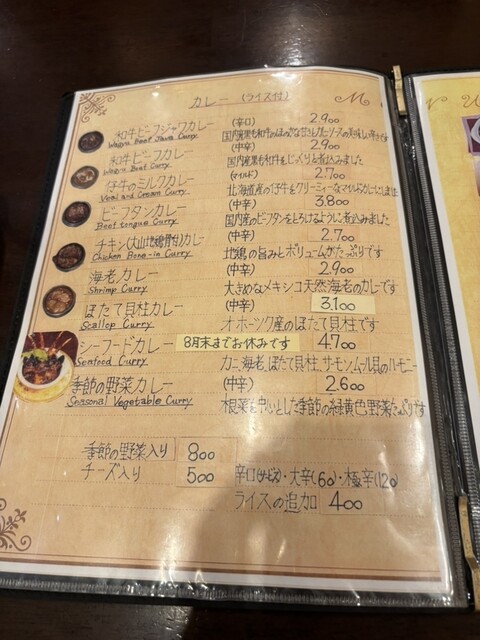 カレー (ライス付)
和牛ビーフジャワカレー (辛口) 2.900
Wagyu Beef Java Curry
和牛ビーフカレー (中辛) 2.900
Wagyu Beef Curry 国内産黒毛和牛をじっくりと煮込みました
仔牛のミルクカレー (マイルド) 2.700
Veal and Cream Curry 北海道産の仔牛をクリーミーなマイルドカレーにしました
ビーフタンカレー (中辛) 3.800
Beef tongue Curry 国内産のビーフタンをとろけるように煮込みました
チキン(大山地鶏骨付)カレー (中辛) 2.700
Chicken Bone-in Curry 地鶏の旨みとボリュームがたっぷりです
海老カレー (中辛) 2.900
Shrimp Curry 大きめなメキシコ天然海老のカレーです
ほたて貝柱カレー (中辛) 3.100
Scallop Curry オホーツク産のほたて貝柱です
シーフードカレー 8月末までお休みです 4.700
Seafood Curry カニ、海老、ほたて貝柱、サーモン、ムール貝のハーモニー
季節の野菜カレー (中辛) 2.600
Seasonal Vegetable Curry 根菜を中心とした季節の緑黄色野菜たっぷりです
季節の野菜入り 800
チーズ入り 500 辛口(サービス)・大辛(60)・極辛(120)
ライスの追加 400